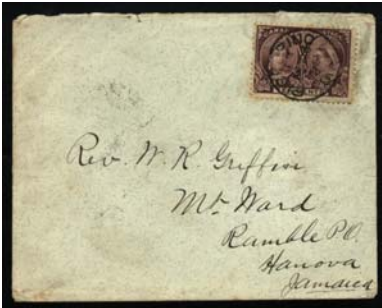 Rev. W. R. Griffin
Mt. Ward
Ramble P.O.
Hanova
Jamaica